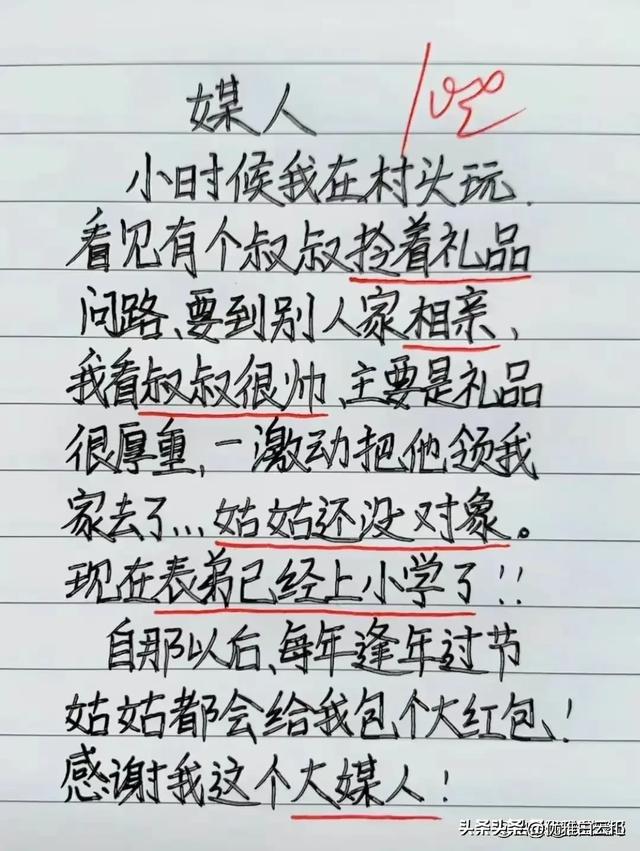 媒人
100
小时候我在村头玩.
看见有个叔叔拎着礼品
问路、要到别人家相亲、
我看叔叔很帅、主要是礼品
很厚重,一激动把他领我
家去了...姑姑还没对象。
现在表弟已经上小学了!!
自那以后、每年逢年过节
姑姑都会给我包个大红包!
感谢我这个大媒人!